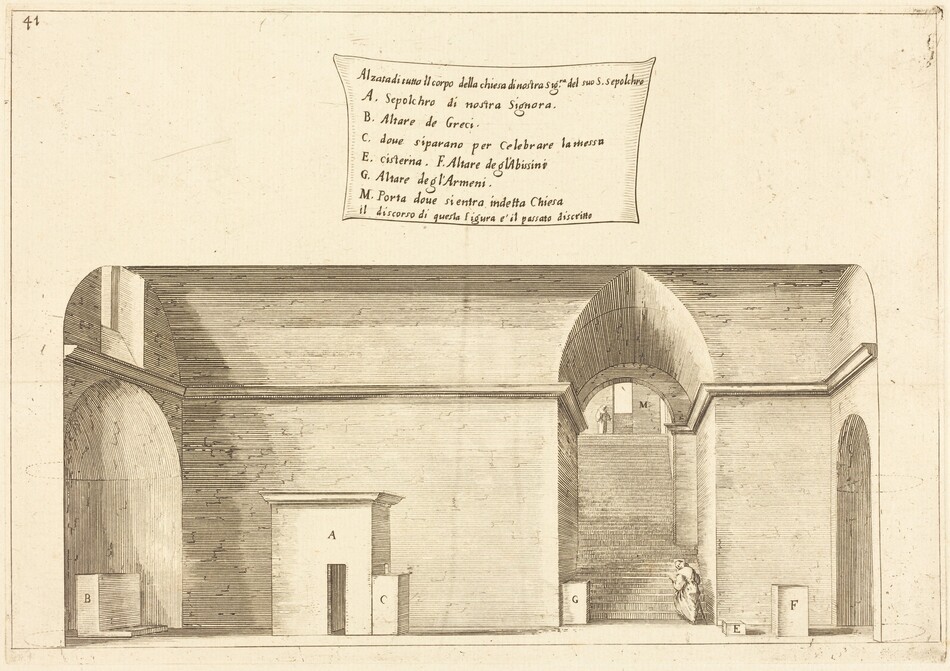 41
Alzata di tutto Il corpo della chiesa di nostra Sig.ra del suo S. sepolchro
A. Sepolchro di nostra Signora.
B. Altare de Greci.
C. doue siparano per Celebrare la messa
E. cisterna. F. Altare degl'Abissini
G. Altare degl'Armeni.
M. Porta doue si entra indetta Chiesa
il discorso di questa figura e' il passato discritto
M
A
B
C
G
E
F